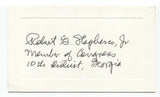 Robert G. Stephens, Jr.
Member of Congress
10th District, Georgia